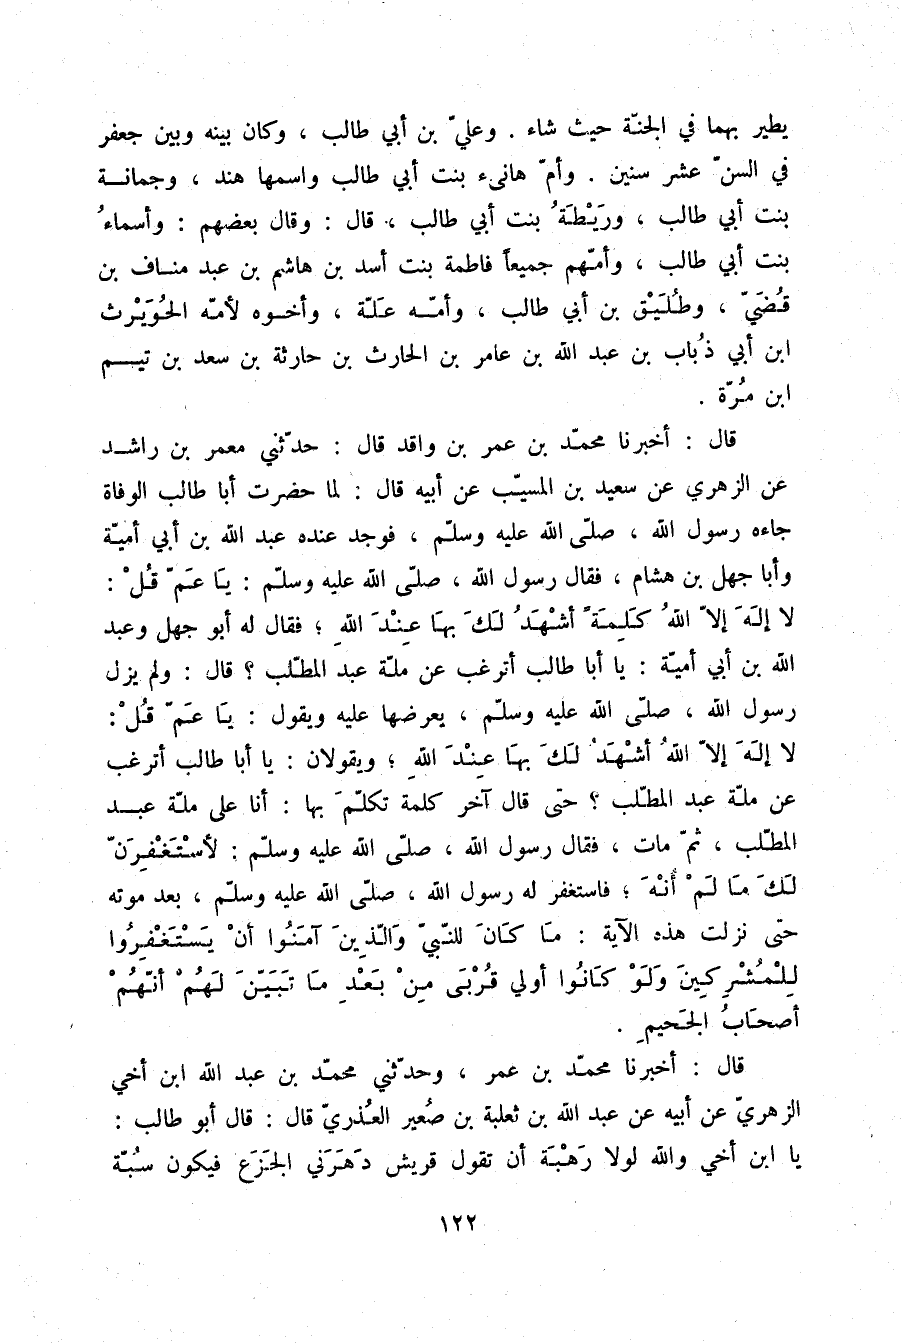 يطير بهما في الجنّة حيث شاء . وعليّ بن أبي طالب ، وكان بينه وبين جعفر
في السنّ عشر سنين . وأمّ هانىء بنت أبي طالب واسمها هند ، وجمانـــة
بنت أبي طالب ، ورَيْطَةُ بنت أبي طالب ، قال : وقال بعضهم : وأسماءُ
بنت أبي طالب ، وأمّهم جميعاً فاطمة بنت أسد بن هاشم بن عبد منـاف بن
قُصَيّ ، وطُلَيْق بن أبي طالب ، وأمّـه عَلّة ، وأخـوه لأمّه الحُوَيْرث
ابن أبي ذُباب بن عبد الله بن عامر بن الحارث بن حارثة بن سعد بن تيـــم
ابن مُرّة .
قال : أخبرنا محمّد بن عمر بن واقد قال : حدّثني معمر بن راشـد
عن الزهري عن سعيد بن المسيّب عن أبيه قال : لما حضرت أبا طالب الوفاة
جاءه رسول الله ، صلّى الله عليه وسلّم ، فوجد عنده عبد الله بن أبي أميّة
وأبا جهل بن هشام ، فقال رسول الله ، صلّى الله عليه وسلّم : يَا عَمّ قُلْ :
لا إلَهَ إلاّ اللهُ كَلِمَةً أشْهَدُ لَكَ بِهَا عِنْدَ اللهِ ؛ فقال له أبو جهل وعبد
الله بن أبي أميّة : يا أبا طالب أترغب عن ملّة عبد المطّلب ؟ قال : ولم يزل
رسول الله ، صلّى الله عليه وسلّم ، يعرضها عليه ويقول : يَا عَمّ قُلْ :
لا إلَهَ إلاّ اللهُ أشْهَدُ لَكَ بِهَا عِنْدَ اللهِ ؛ ويقولان : يا أبا طالب أترغب
عن ملّة عبد المطّلب ؟ حتى قال آخر كلمة تكلّمَ بها : أنا على ملّة عبــد
المطّلب ، ثمّ مات ، فقال رسول الله ، صلّى الله عليه وسلّم : لأسْتَغْفِرَنّ
لَكَ مَا لَمْ أُنْهَ ؛ فاستغفر له رسول الله ، صلّى الله عليه وسلّم ، بعد موته
حتّى نزلت هذه الآية : مَا كَانَ لِلنّبيّ وَالّذِينَ آمَنُوا أنْ يَسْتَغْفِرُوا
لِلْمُشْرِكِينَ وَلَوْ كَانُوا أولي قُرْبَى مِنْ بَعْدِ مَا تَبَيّنَ لَهُمْ أنّهُمْ
أصحَابُ الجَحيمِ .
قال : أخبرنا محمّد بن عمر ، وحدّثني محمّد بن عبد الله ابن أخي
الزهريّ عن أبيه عن عبد الله بن ثعلبة بن صُعير العُذريّ قال : قال أبو طالب :
يا ابن أخي والله لولا رَهْبَة أن تقول قريش دَهَرَني الجَزَع فيكون سُبّة
١٢٢